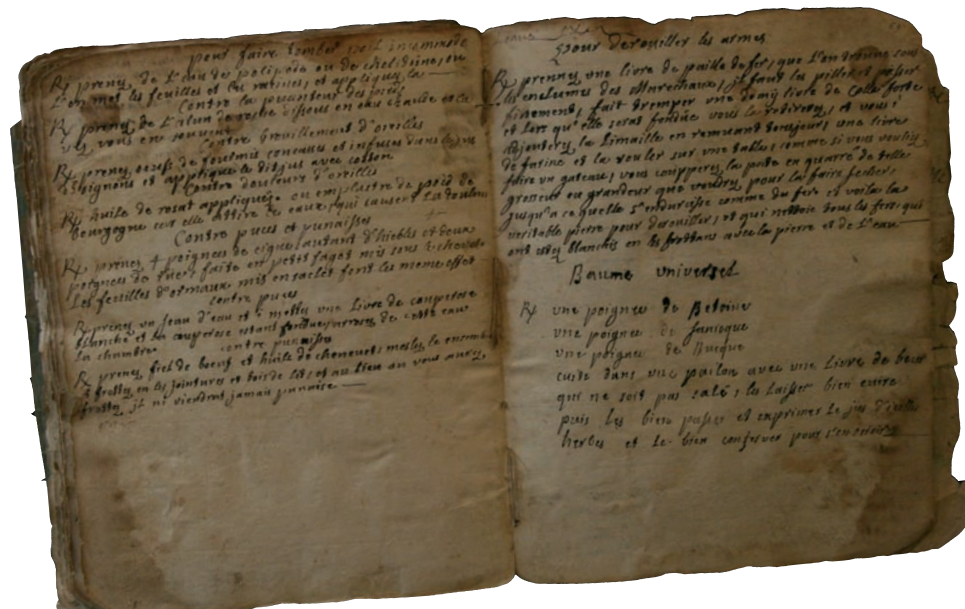 pour faire tomber poil incommode
℞ prenez de L'eau de polipode ou de chelidoine, ou
L'on met les feuilles et les racines, et appliquez la
Contre la puanteur des pieds
℞ prenez de L'alun de roche dissous en eau chaude et la
vez vous en souvent
Contre brouillement d'oreilles
℞ prenez oeufs de fourmis concassés et infuses dans
d'oignons et appliquez le dit jus avec cotton
Contre douleurs d'oreilles
℞ huile de rosat appliquée ou emplastre de poid de
bourgogne car elle attire les eaux qui causent la douleur
Contre puces et punaises
℞ prenez 4 poignees de cigue autant d'hiebles et deux
poignees de faite en petit fagot mis sous le chevet
Les feuilles d'ormaux mis en font les meme effet
contre puces
℞ prenez un seau d'eau et mettez une Livre de couperose
blanche et la couperose estant fondue arrosez de cette eau
la chambre
contre punaises
℞ prenez fiel de boeuf et huile de chenevets meslez le ensemble
et frottez en les jointures et bois de lit et au lieu ou vous aurez
frotté il ne viendront jamais punaise
pour derouiller les armes
℞ prennez une livre de paille de fer, que L'on trouve sous
les enclumes des Marechaux, il faut la piller et passer
finement, fait tremper une demy livre de Colle forte
et Lors qu'elle sera fondue vous la retirerez, et vous i
adjouterez la Limaille en remuant toujours, une livre
de farine et la rouler sur une table comme si vous vouliez
faire un gateau, vous coupperez la paste en quarré de telle
grosseur ou grandeur que voudrez, pour la faire secher
jusqu'a ce quelle s'endurcisse comme du fer et voila la
veritable pierre pour derouiller, et qui nettoie tous les fers qui
ont estez blanchis en les frottans avec la pierre et de L'eau
Baume universel
℞ une poignee de Betoine
une poignee de sanicque
une poignee de Bucque
cuite dans une pailon avec une Livre de beur
qui ne soit pas salé, les laisser bien cuire
puis les bien passer et exprimer le jus d'icelles
herbes et le bien conserver pour s'en servir